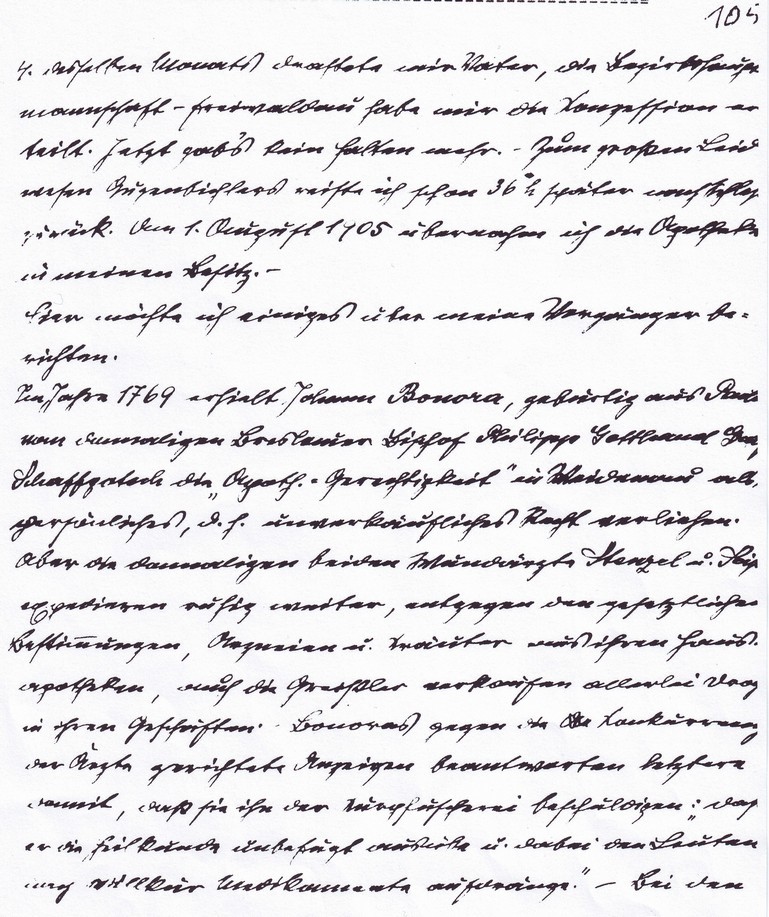 105
4. desselben Monats drahtete mir Vater, die Bezirkshaupt
mannschaft - Freiwaldau habe mir die Konzession er
teilt. Jetzt gab's kein Halten mehr. - Zum großen Leid
wesen Gugenbichlers reiste ich schon 36 h später nach
zurück. Am 1. August 1905 übernahm ich die Apotheke
in meinen Besitz. -
Hier möchte ich einiges über meine Vorgänger be-
richten.
Im Jahre 1769 erhielt Johann Bonora, gebürtig aus
vom damaligen Breslauer Bischof Philipp Gotthard
Schaffgotsch die „Apoth.-Gerechtigkeit" in Weidenau als
persönliches, d. h. unverkäufliches Recht verliehen.
Aber die damaligen beiden Wundärzte Stenzel u.
expedieren ruhig weiter, entgegen den gesetzlichen
Bestimmungen, Arzneien u. Kräuter aus ihren Haus-
apotheken, auch die Greißler verkaufen allerlei Drog
in ihren Geschäften. Bonoras gegen die Konkurrenz
der Ärzte gerichtete Anzeigen beantworten letztere
damit, daß sie ihn der Kurpfuscherei beschuldigen: „daß
er die Heilkunde unbefugt ausübe u. dabei den Leuten
nach Willkür Medikamente aufdränge." - Bei den